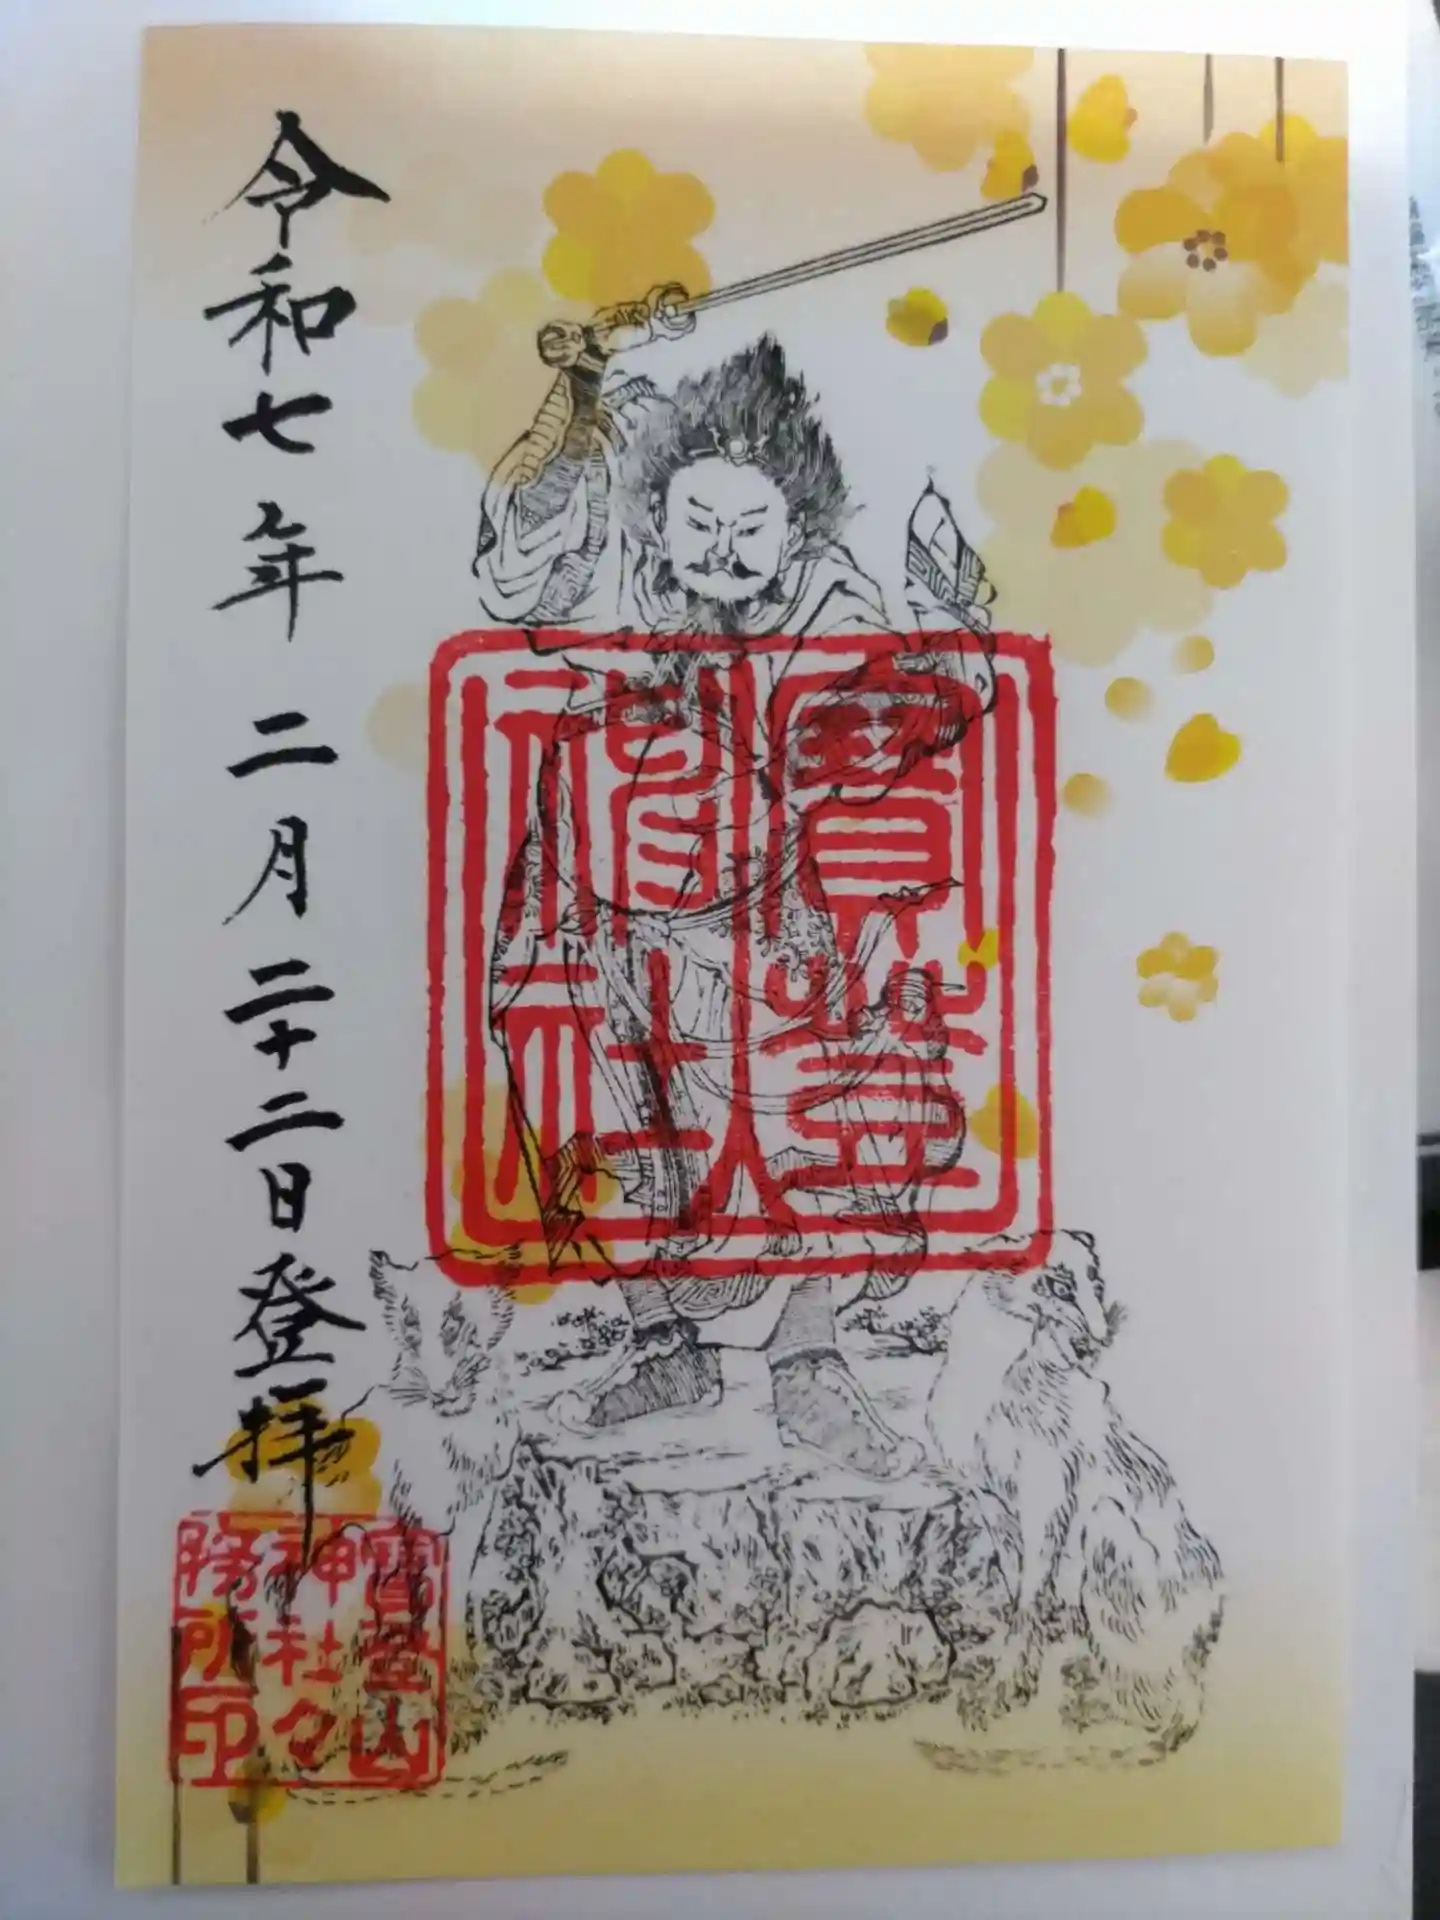 令和七年二月二十二日登拝
寳登
神社
寳登山
神社々
務所印